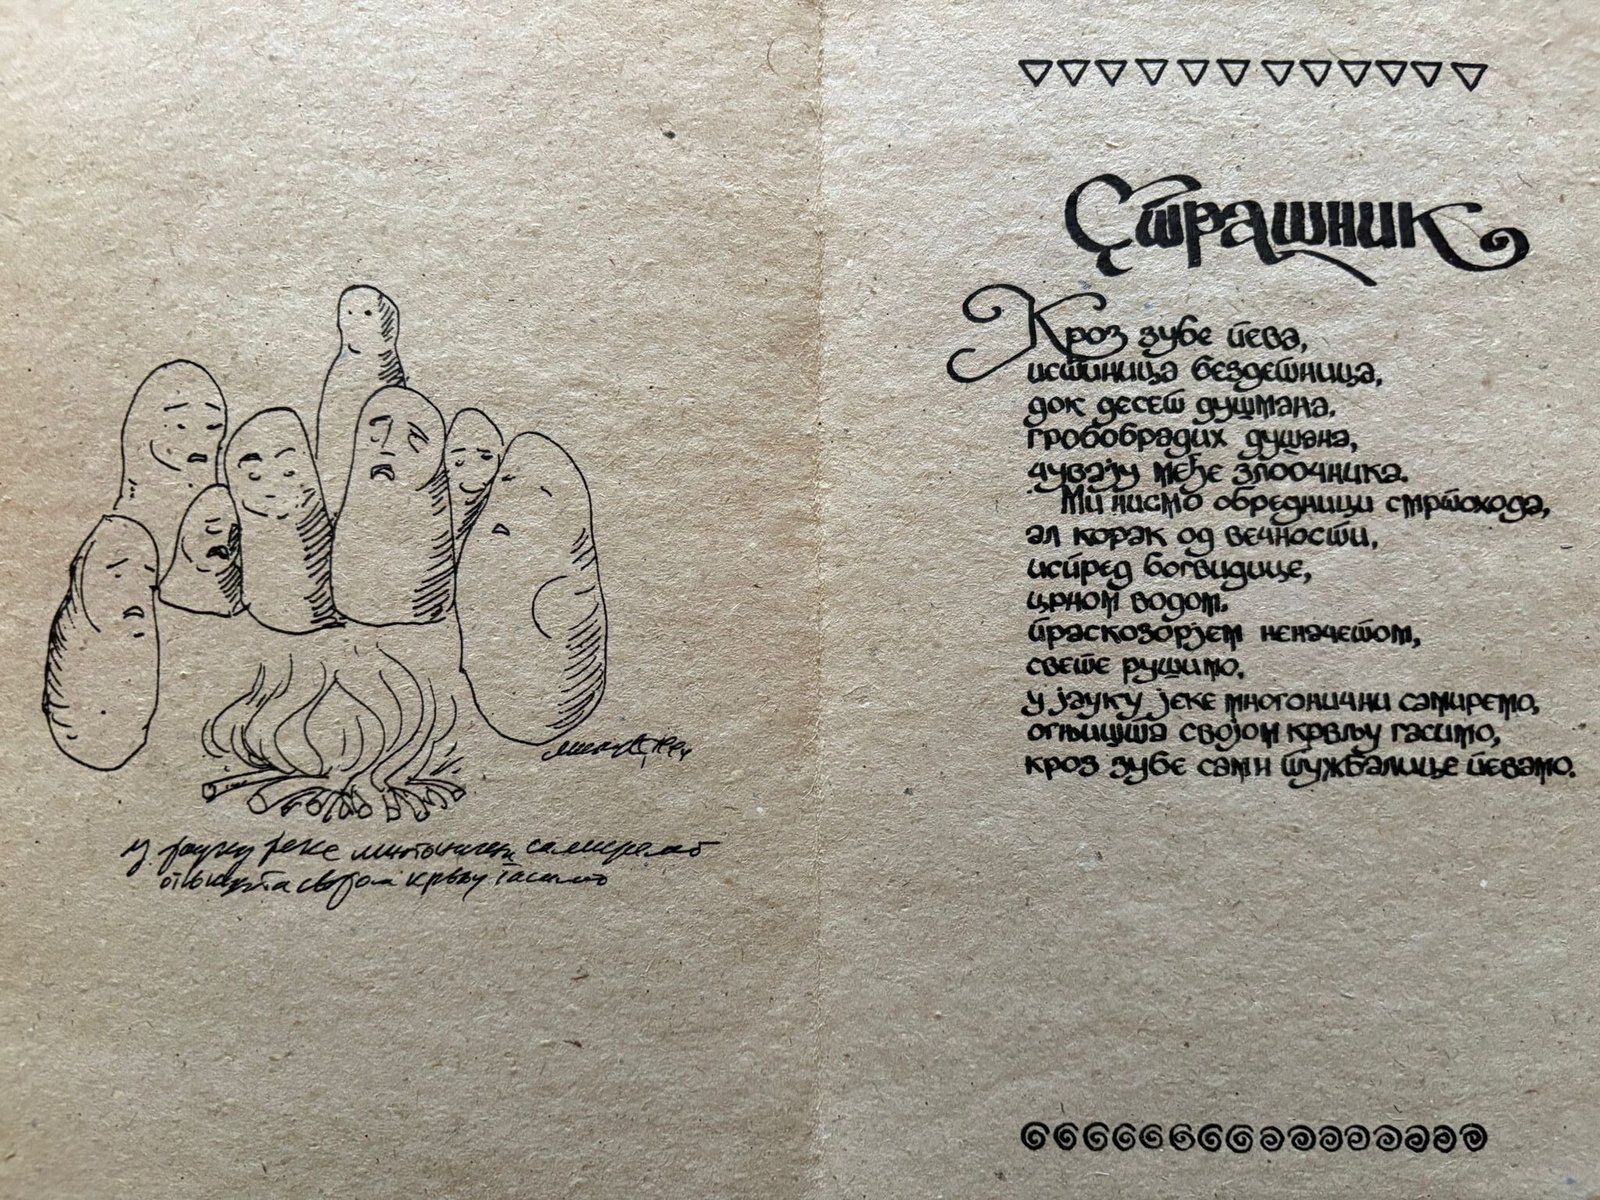 у јауку јеке многонични самиремо
огњишта својом крвљу гасимо
Страшник
Кроз зубе пева,
истиница бездетница,
док десет душмана,
гробобрадих душана,
чувају међе злоочника.
Ми нисмо обредници смртохода,
ал корак од вечности,
испред боговидице,
црном водом,
праскозорјем неначетом,
свете рушимо,
у јауку јеке многонични самиремо,
огњишта својом крвљу гасимо,
кроз зубе сами тужбалице певамо.